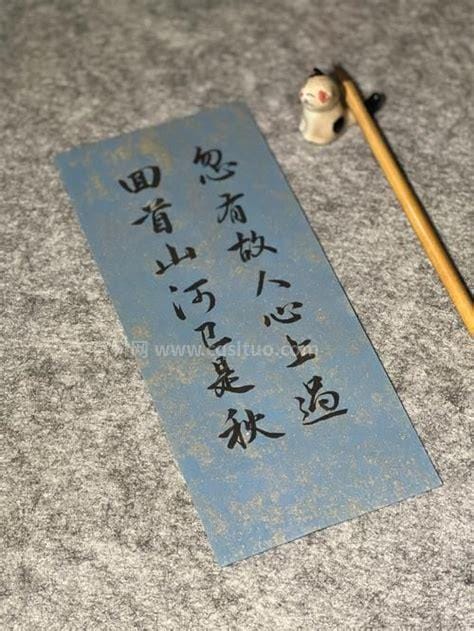 忽有故人心上過
回首山河已是秋
网 www.cqsituo.com